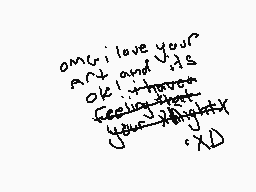 OMG i love your
Art! and it's
Ok! i have a
feeling that
your
:XD